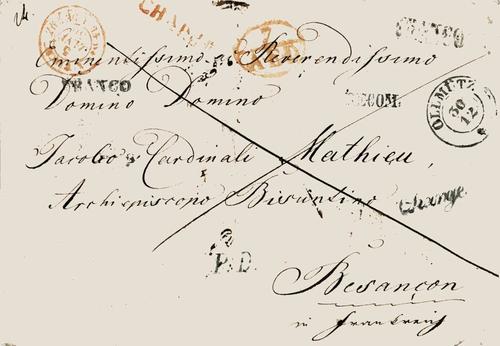 CHARGÉ
FRANCO
Eminentissimo Reverendissimo
FRANCO
RECOM.
OLLMÜTZ
30
12
Domino Domino
Jacobo Cardinali Mathieu,
Archiepiscopo Bisuntino
Charge.
P.D.
Besançon
in Frankreich